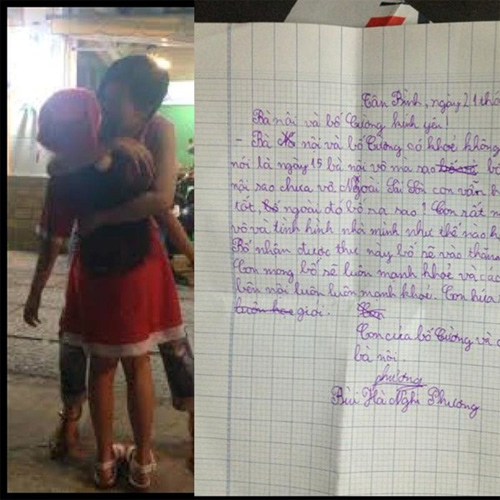 Tân Bình, ngày 21 thá
Bà nội và bố Cương kính yêu!
- Bà nội và bố Cương có khoẻ không
nói là ngày 15 bà nội vô mà sao
nội sao chưa vô Ngoài Sài Gòn con vẫn
tốt, ngoài đó bố ra sao? Con rất
vô và tình hình nhà mình như thế nào
Bố nhận được thư này bố sẽ vào thăm
Con mong bố sẽ luôn mạnh khoẻ và các
bên nội luôn luôn mạnh khoẻ. Con hứa
luôn học giỏi.
Con của bố Cương và
bà nội.
phương
Bùi Hà Nghi Phương